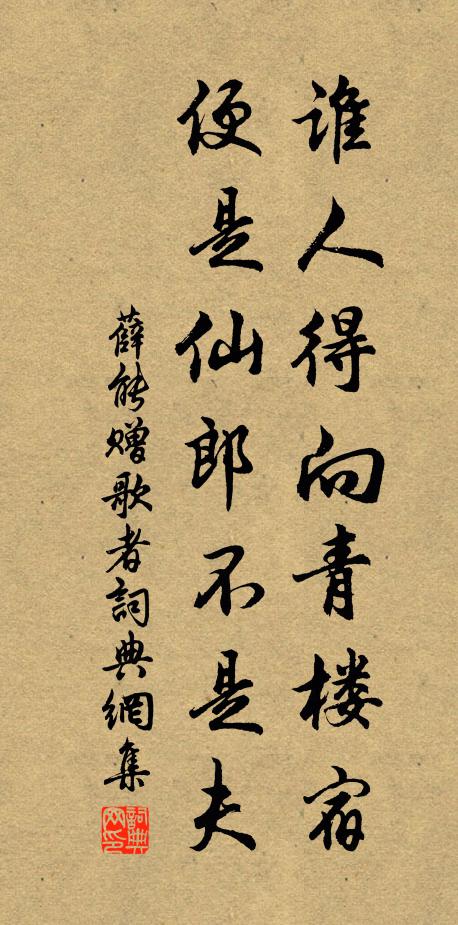 谁人得向青楼宿
便是仙郎不是夫
薛能赠歌者詞典網集
詞典网印